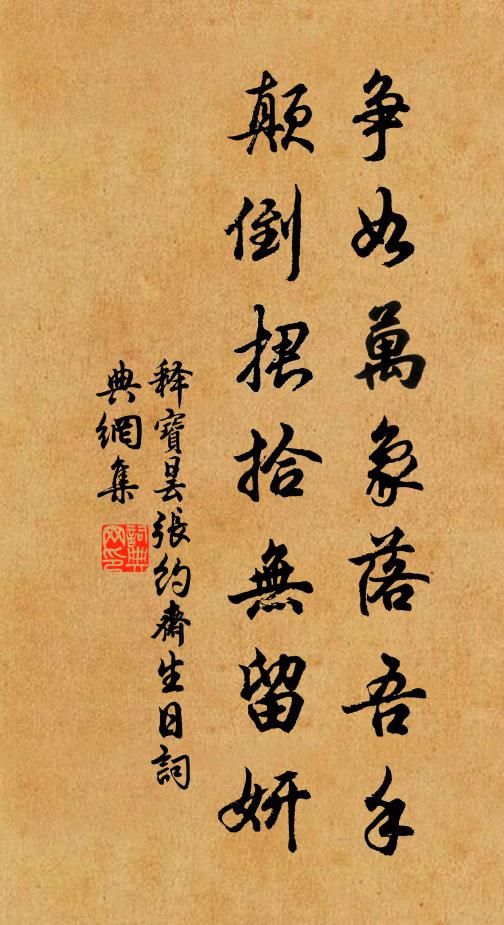 争如萬象落吾手
顛倒捃拾無留妍
釋寶曇張約齋生日詞
典網集
詞典網印